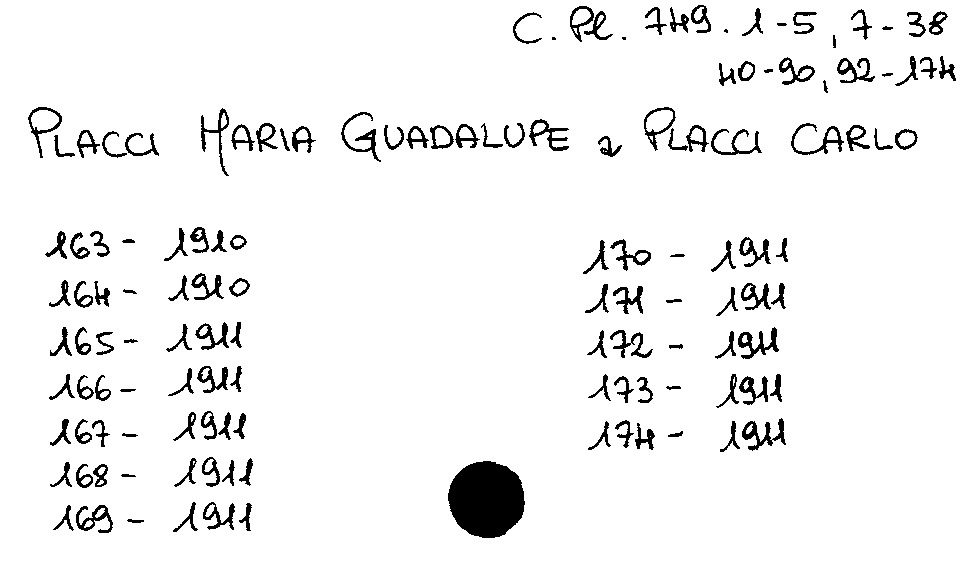 C. Pl. 749. 1-5, 7-38
40-90, 92-174
PLACCI MARIA GUADALUPE a PLACCI CARLO
163 - 1910
164 - 1910
165 - 1911
166 - 1911
167 - 1911
168 - 1911
169 - 1911
170 - 1911
171 - 1911
172 - 1911
173 - 1911
174 - 1911